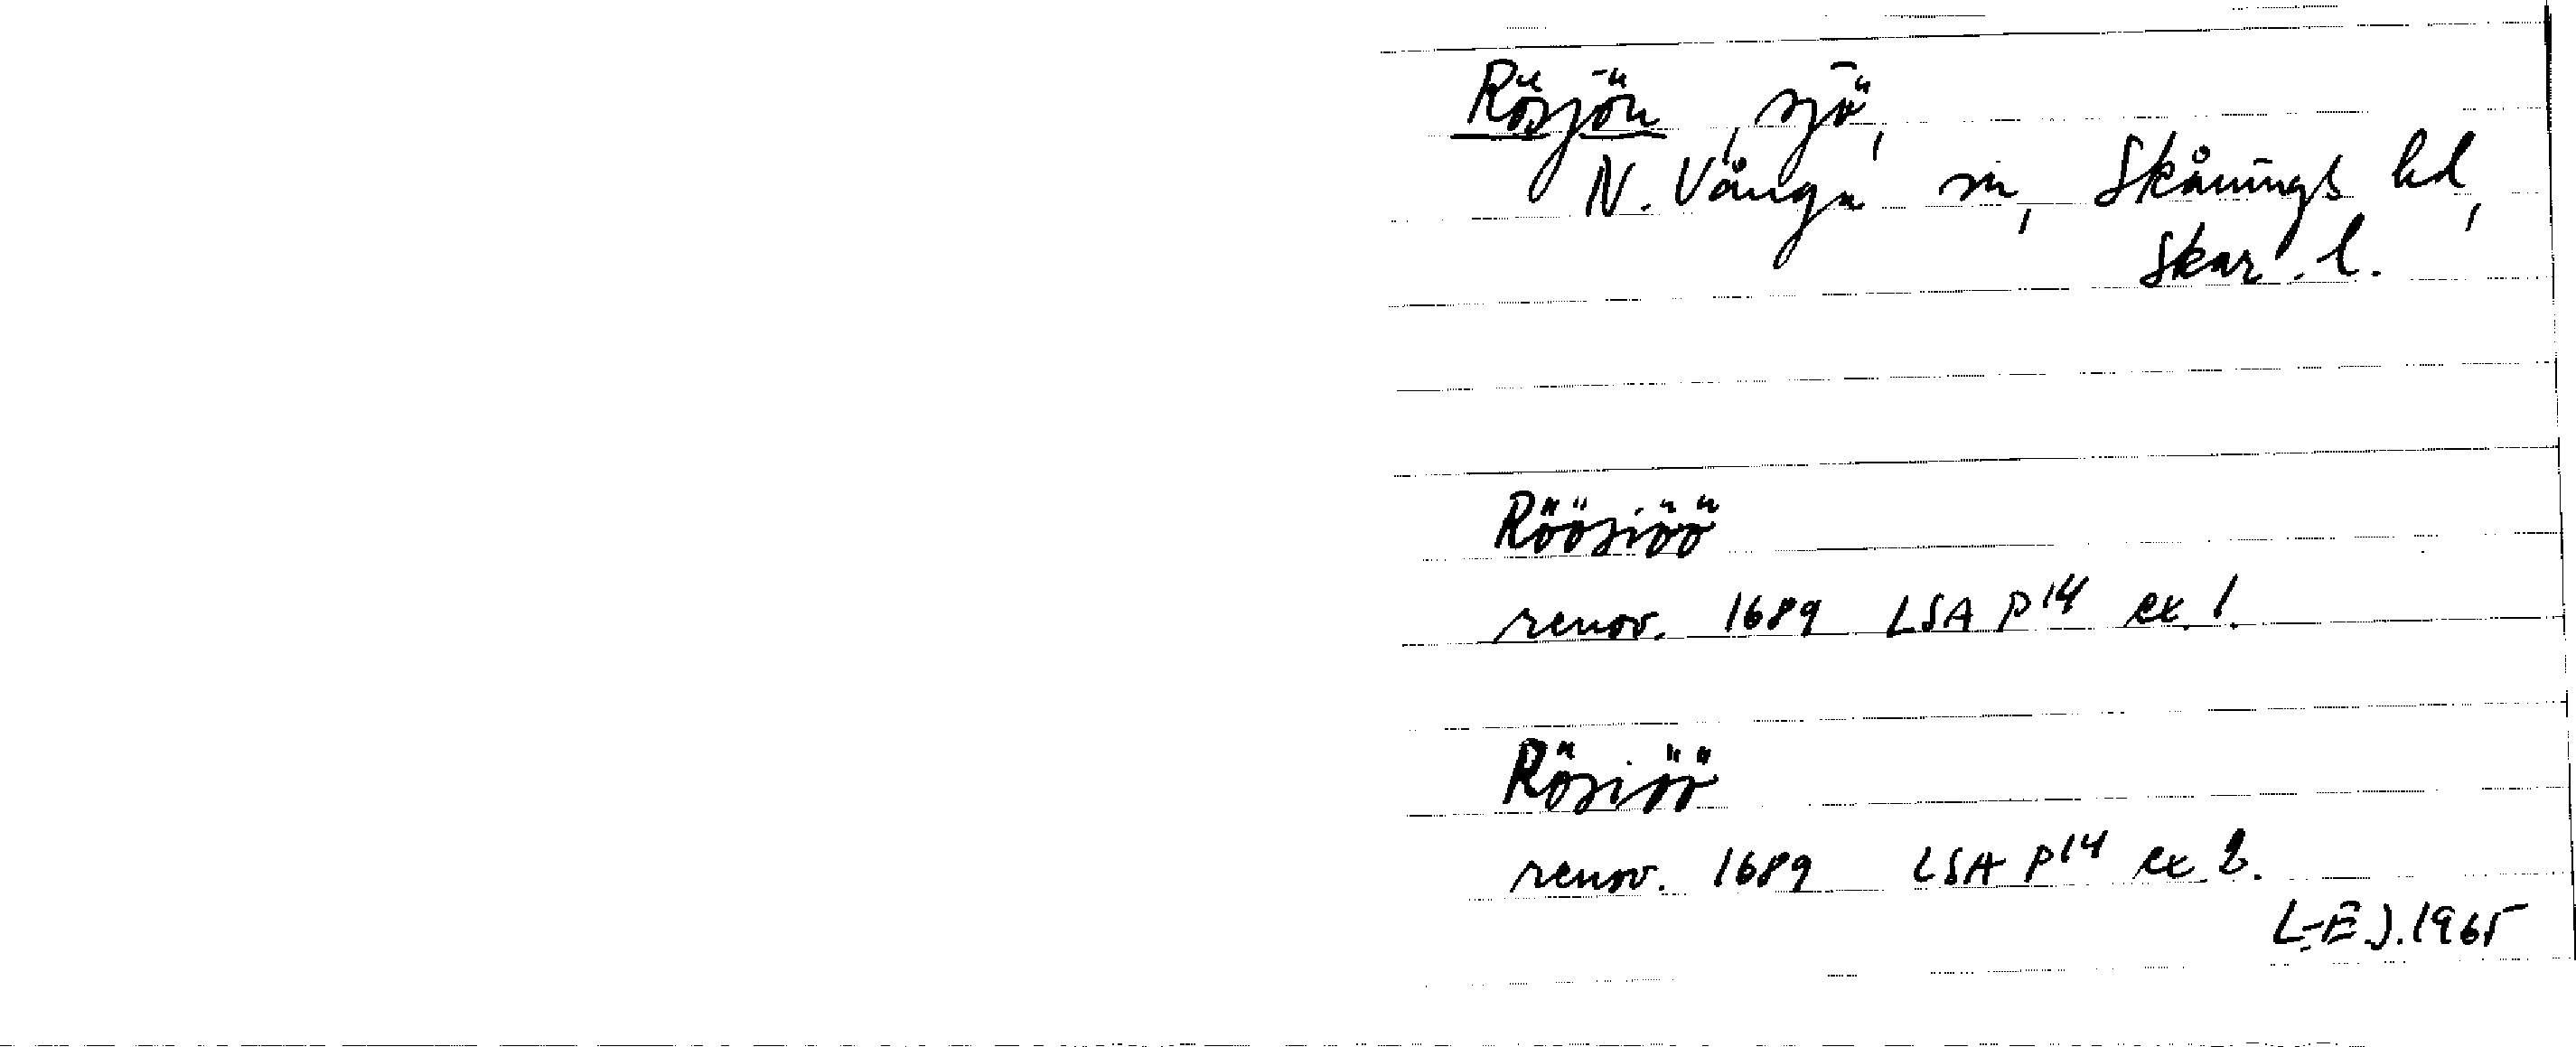 Rösjön, sjö,
N. Vånga sn, Skånings hd,
Skar. l.
Röösiöö
renov. 1689 LSA P14 ex. 1.
Rösiöö
renov. 1689 LSA P14 ex 2.
L-E J. 1965